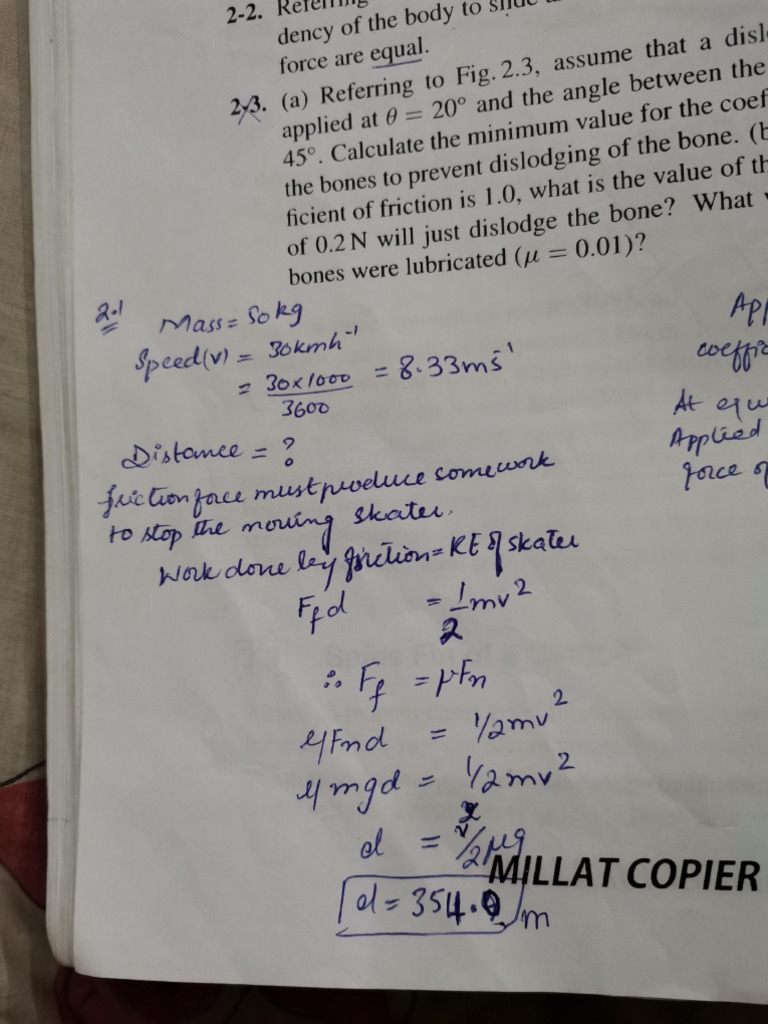 2-2. Referring
dency of the body to slide
force are equal.
2-3. (a) Referring to Fig. 2.3, assume that a
applied at θ = 20° and the angle between the
45°. Calculate the minimum value for the
the bones to prevent dislodging of the bone.
ficient of friction is 1.0, what is the value of
of 0.2 N will just dislodge the bone? What
bones were lubricated (μ = 0.01)?
2.1 Mass = 50 kg
Speed(v) = 30kmh⁻¹
= 30×1000/3600 = 8.33ms⁻¹
Distance = ?
friction force must produce some work
to stop the moving skater.
Work done by friction = KE of skater
F_f d = 1/2 mv²
∴ F_f = μFn
μFnd = 1/2mv²
μmgd = 1/2mv²
d = v²/2μg
d = 354.0 m
At
Applied
force
MILLAT COPIER